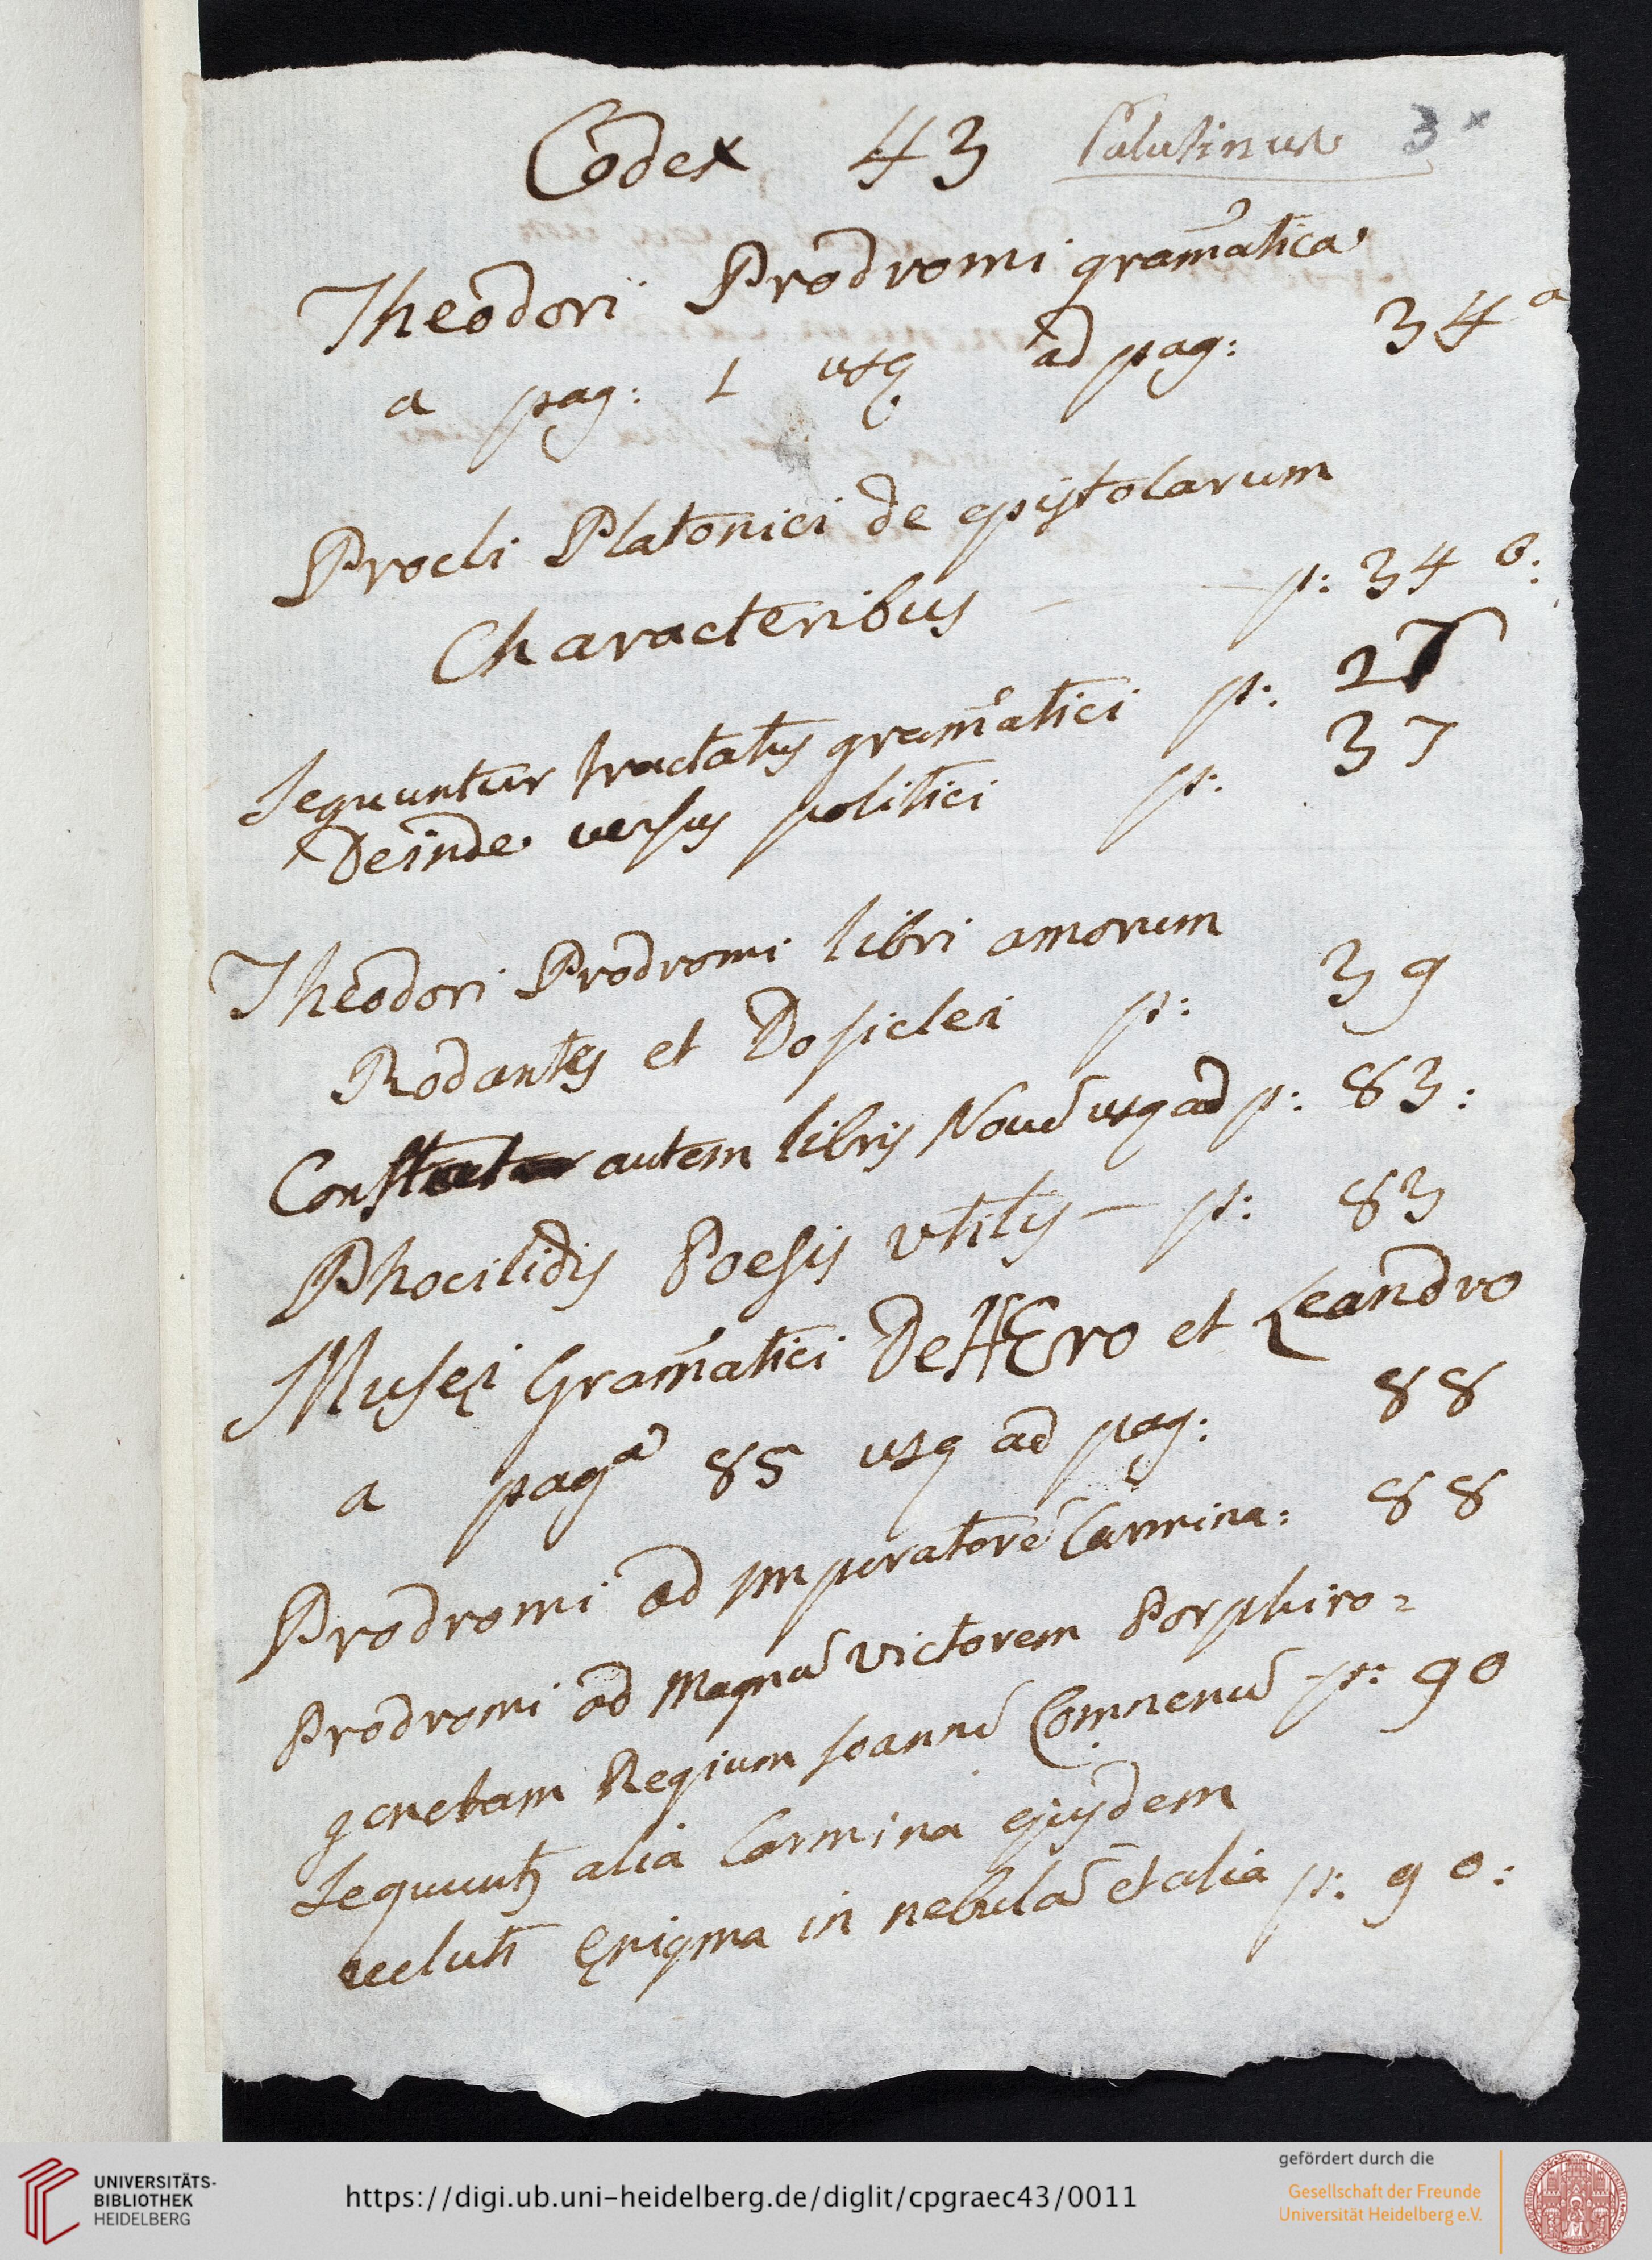 Codex 43 Palatinus 3 x
Theodori Prodromi gram̃atica
a pag: 1 usq ad pag: 34 a
Procli Platonici de epistolarum
Characteribus — — p: 34 b:
Sequuntur tractatus gram̃atici p:
Deinde versus politici p: 37
Theodori Prodromi libri amorum
Rodantes et Dosiclei p: 39
Const autem libris Nouẽ usq ad p: 83:
Phocilidis Poesis vtilis — p: 83
Musęi Gram̃atici De HEro et Leandro
a pag a 85 usq ad pag: 88
Prodromi ad Imperatorẽ Carmina: 88
Prodromi ad Magnũ Victorem Porphiro=
genetam Regium Ioannẽ Comnenũ p: 90
Sequunt alia Carmina ejusdem
veluti Ęnigma in nebulã et alia p: 90:
UNIVERSITÄTS-
BIBLIOTHEK
HEIDELBERG
https://digi.ub.uni-heidelberg.de/diglit/cpgraec43/0011
gefördert durch die
Gesellschaft der Freunde
Universität Heidelberg e.V.